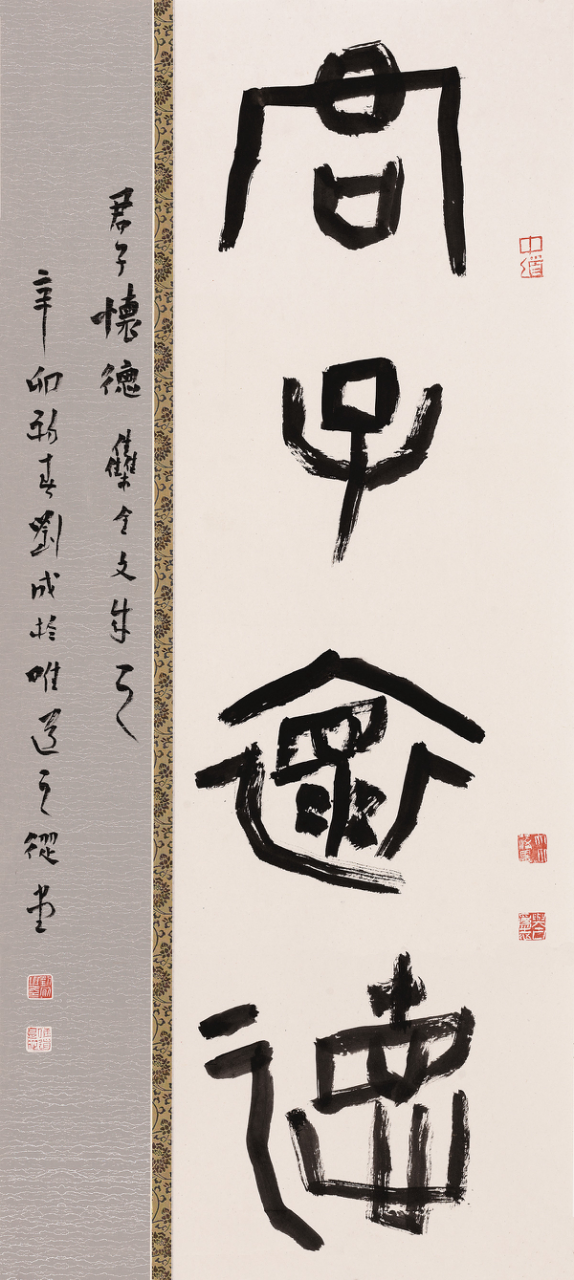 中道
君子懷德
君子懷德 集金文
辛卯新春劉成於唯道之從堂